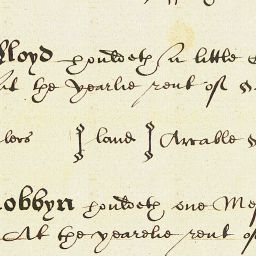 lloyd houldeth a little
At the yearlie rent of
lers } land } Arrable
obbyn houldeth one Mes
At the yearelie rent of